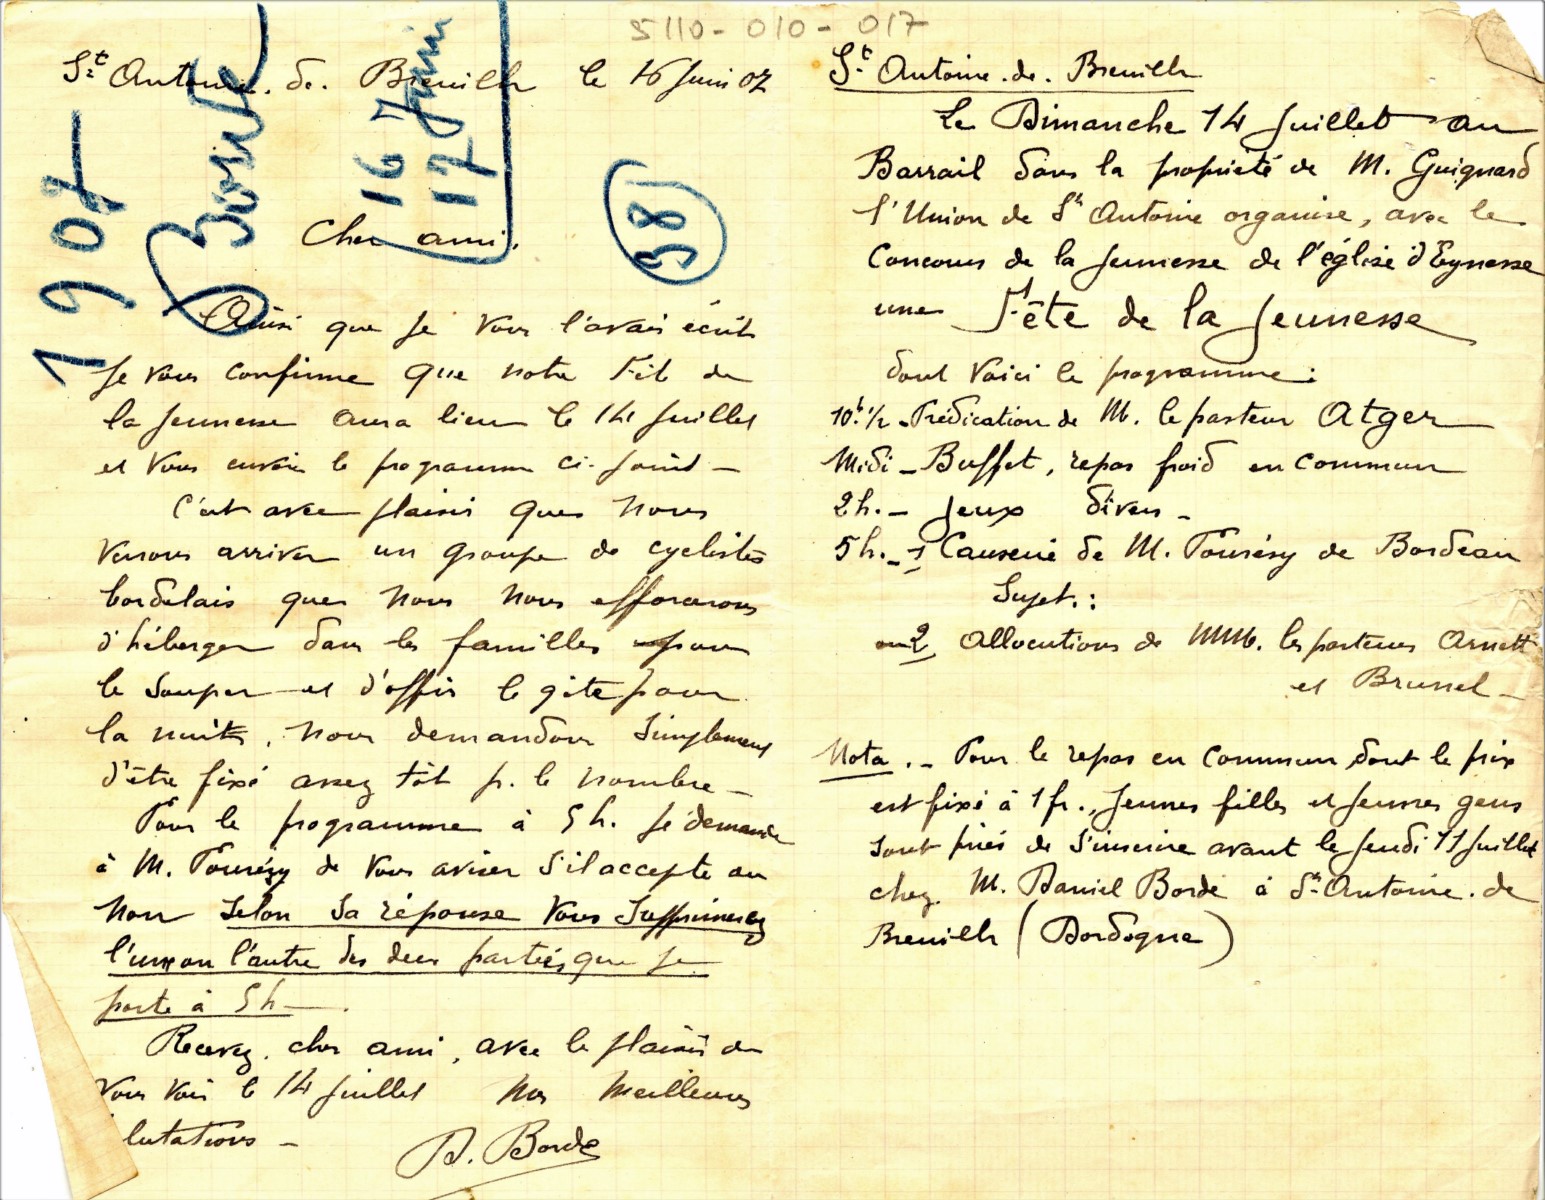 5110-010-017
1907
Borde
16 7 Juin
17 Juin
38
St Antoine. de. Breuilh le 16 Juin 07
Cher ami.
Ainsi que je vous l'avais écrit
je vous confirme que notre Fêt de
la jeunesse aura lieu le 14 juillet
et vous envoie le programme ci-joint -
C'est avec plaisir que nous
verrons arriver un groupe de cyclistes
bordelais que nous nous efforcerons
d'héberger dans les familles pour
le souper et d'offrir le gîte pour
la nuit, nous demandons simplement
d'être fixé assez tôt p. le nombre -
Pour le programme à 5 h. je demande
à M. Fourézy de vous aviser s'il accepte ou
non selon sa réponse vous supprimerez
l'un ou l'autre des deux parties que je
porte à 5 h - .
Recevez, cher ami, avec le plaisir de
vous voir le 14 juillet nos meilleures
lutations -
D. Borde
St Antoine. de. Breuilh
Le Dimanche 14 Juillet au
Barrail dans la propriété de M. Guignard
l'Union de St Antoine organise, avec le
Concours de la jeunesse de l'église d'Eynesse
une Fête de la Jeunesse
dont voici le programme :
10h. 1/2 - Prédication de M. le pasteur Atger
Midi - Buffet, repas froid en commun
2 h. - Jeux divers -
5 h. - 1 Causerie de M. Fourézy de Bordeau
Sujet. :
ou 2 Allocutions de MM. les pasteurs Arnett
et Brunel -
Nota. - Pour le repas en commun, dont le prix
est fixé à 1 fr., jeunes filles et jeunes gens
sont priés de s'inscrire avant le jeudi 11 juillet
chez M. Daniel Borde à St Antoine. de
Breuilh (Dordogne)